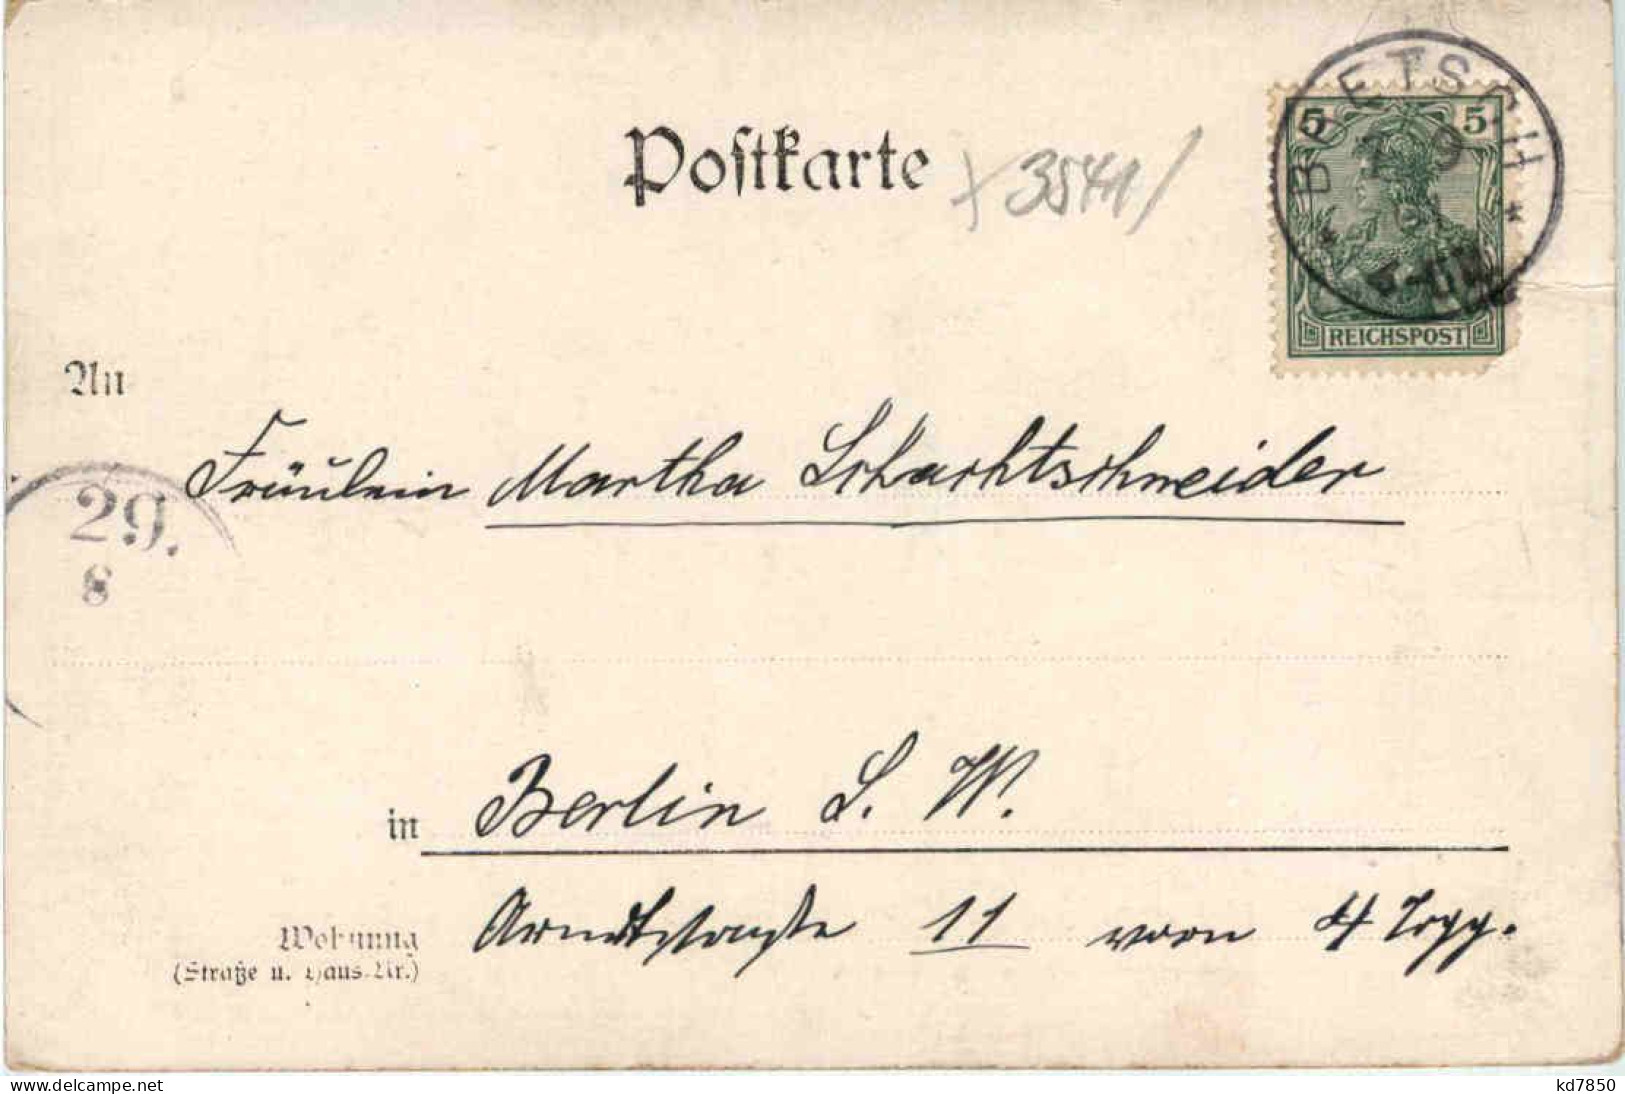 Postkarte
3541
5 5
REICHSPOST
BOETSCH
An
Fräulein Martha Schachtschneider
29.
8
in Berlin S. W.
Wohnung
(Straße u. Haus-Nr.)
Arndtstraße 11 vorn 4 Trpp.
delcampe.net
kd7850